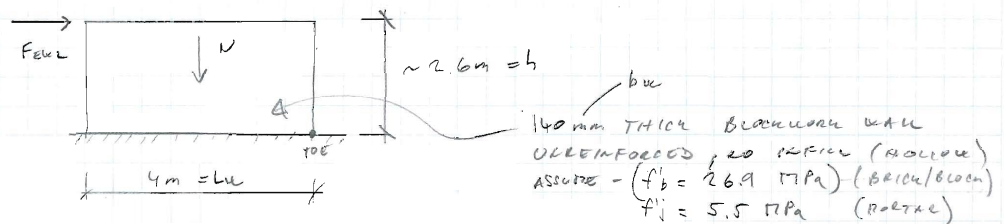 FEWL
N
~ 2.6m = h
bw
140mm THICK BLOCKWORK WALL
UNREINFORCED, NO INFILL (HOLLOW)
ASSUME - (f'b = 26.9 MPa) (BRICK/BLOCK)
f'j = 5.5 MPa (MORTAR)
TOE
4m = Lw